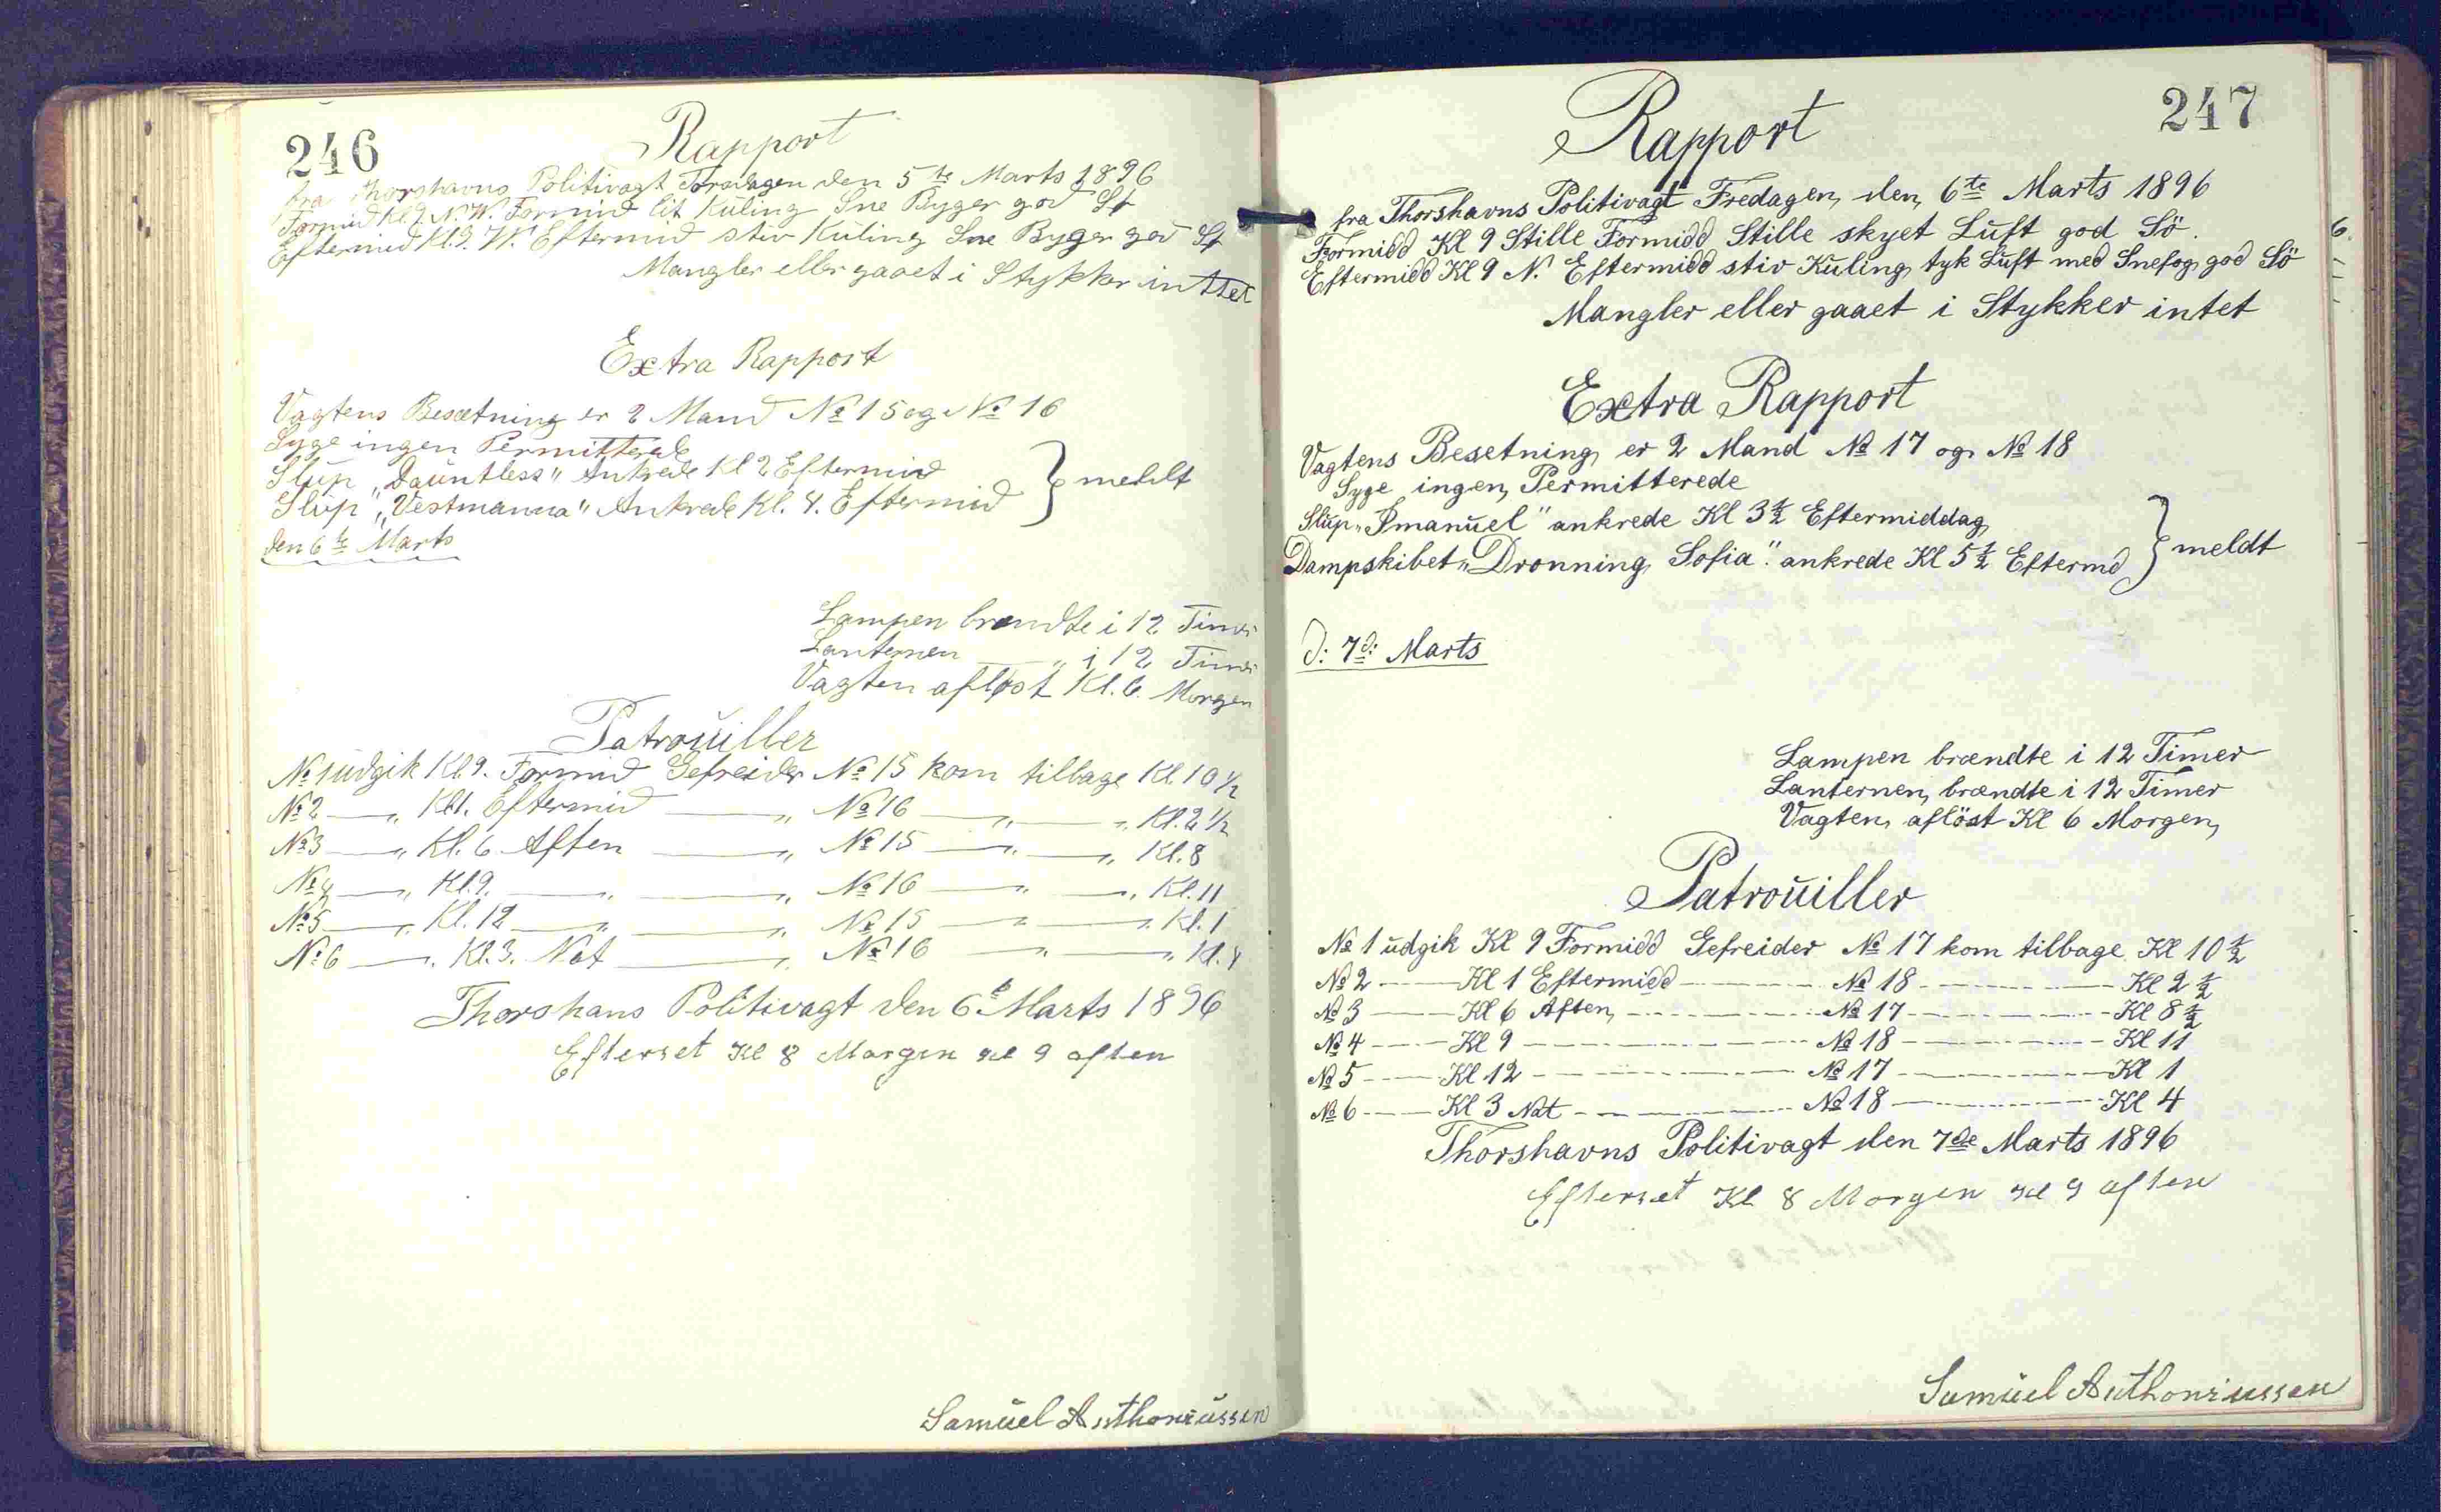 246
Rapport
fra Thorshavns Politivagt Torsdagen den 5te Marts 1896
Formid Kl 9. N.W. Formid lit Kuling Sne Byger god Sø
Eftermid Kl 9. W. Eftermid stiv Kuling Sne Byger god Sø
Mangler eller gaaet i Stykker inttet
Extra Rapport
Vagtens Besætning er 2 Mand № 15 og № 16
Syge ingen Permitterede
Slup „Dauntless" Ankrede Kl 2 Eftermid
Slup „Vestmanna" Ankrede Kl. 4. Eftermid } meldt
den 6te Marts
Lampen brændte i 12 Timer
Lanternen —„ i 12 Timer
Vagten afløst Kl. 6. Morgen
Patrouiller
№ 1 udgik Kl 9. Formid Gefreider № 15 kom tilbage Kl 10 1/2
№ 2 —„ Kl 1. Eftermid —„ № 16 —„ —„ Kl. 2 1/2
№ 3 —„ Kl. 6 Aften —„ № 15 —„ —„ Kl. 8
№ 4 —„ Kl. 9. —„ —„ № 16 —„ —„ Kl. 11
№ 5 —„ Kl. 12 —„ —„ № 15 —„ —„ Kl. 1
№ 6 —„ Kl. 3. Nat —„ № 16 —„ —„ Kl. 4
Thorshans Politivagt den 6te Marts 1896
Efterset Kl 8 Morgen Kl 9 aften
Samuel Anthoniussen
247
Rapport
fra Thorshavns Politivagt Fredagen, den, 6te Marts 1896
Formidd Kl 9 Stille Formidd Stille skyet Luft god Sö.
Eftermidd Kl 9 N. Eftermidd stiv Kuling, tyk Luft med Snefog, god Sö
Mangler eller gaaet i Stykker intet
Extra Rapport
Vagtens Besetning, er 2 Mand № 17 og № 18
Syge ingen, Permitterede
Slup „Imanuel" ankrede Kl 3 1/2 Eftermiddag,
Dampskibet „Dronning, Sofia". ankrede Kl 5 1/2 Eftermd } meldt
d: 7d: Marts
Lampen brændte i 12 Timer
Lanternen, brændte i 12 Timer
Vagten, aflöst Kl 6 Morgen,
Patrouiller
№ 1 udgik Kl 9 Formidd Gefreider № 17 kom tilbage Kl 10 1/2
№ 2 —— Kl 1 Eftermidd —— № 18 —— Kl 2 1/2
№ 3 —— Kl 6 Aften, —— № 17 —— Kl 8 1/2
№ 4 —— Kl 9 —— № 18 —— Kl 11
№ 5 —— Kl 12 —— № 17 —— Kl 1
№ 6 —— Kl 3 Nat —— № 18 —— Kl 4
Thorshavns Politivagt den 7de Marts 1896
Efterset Kl 8 Morgen Kl 9 aften
Samuel Anthoniussen